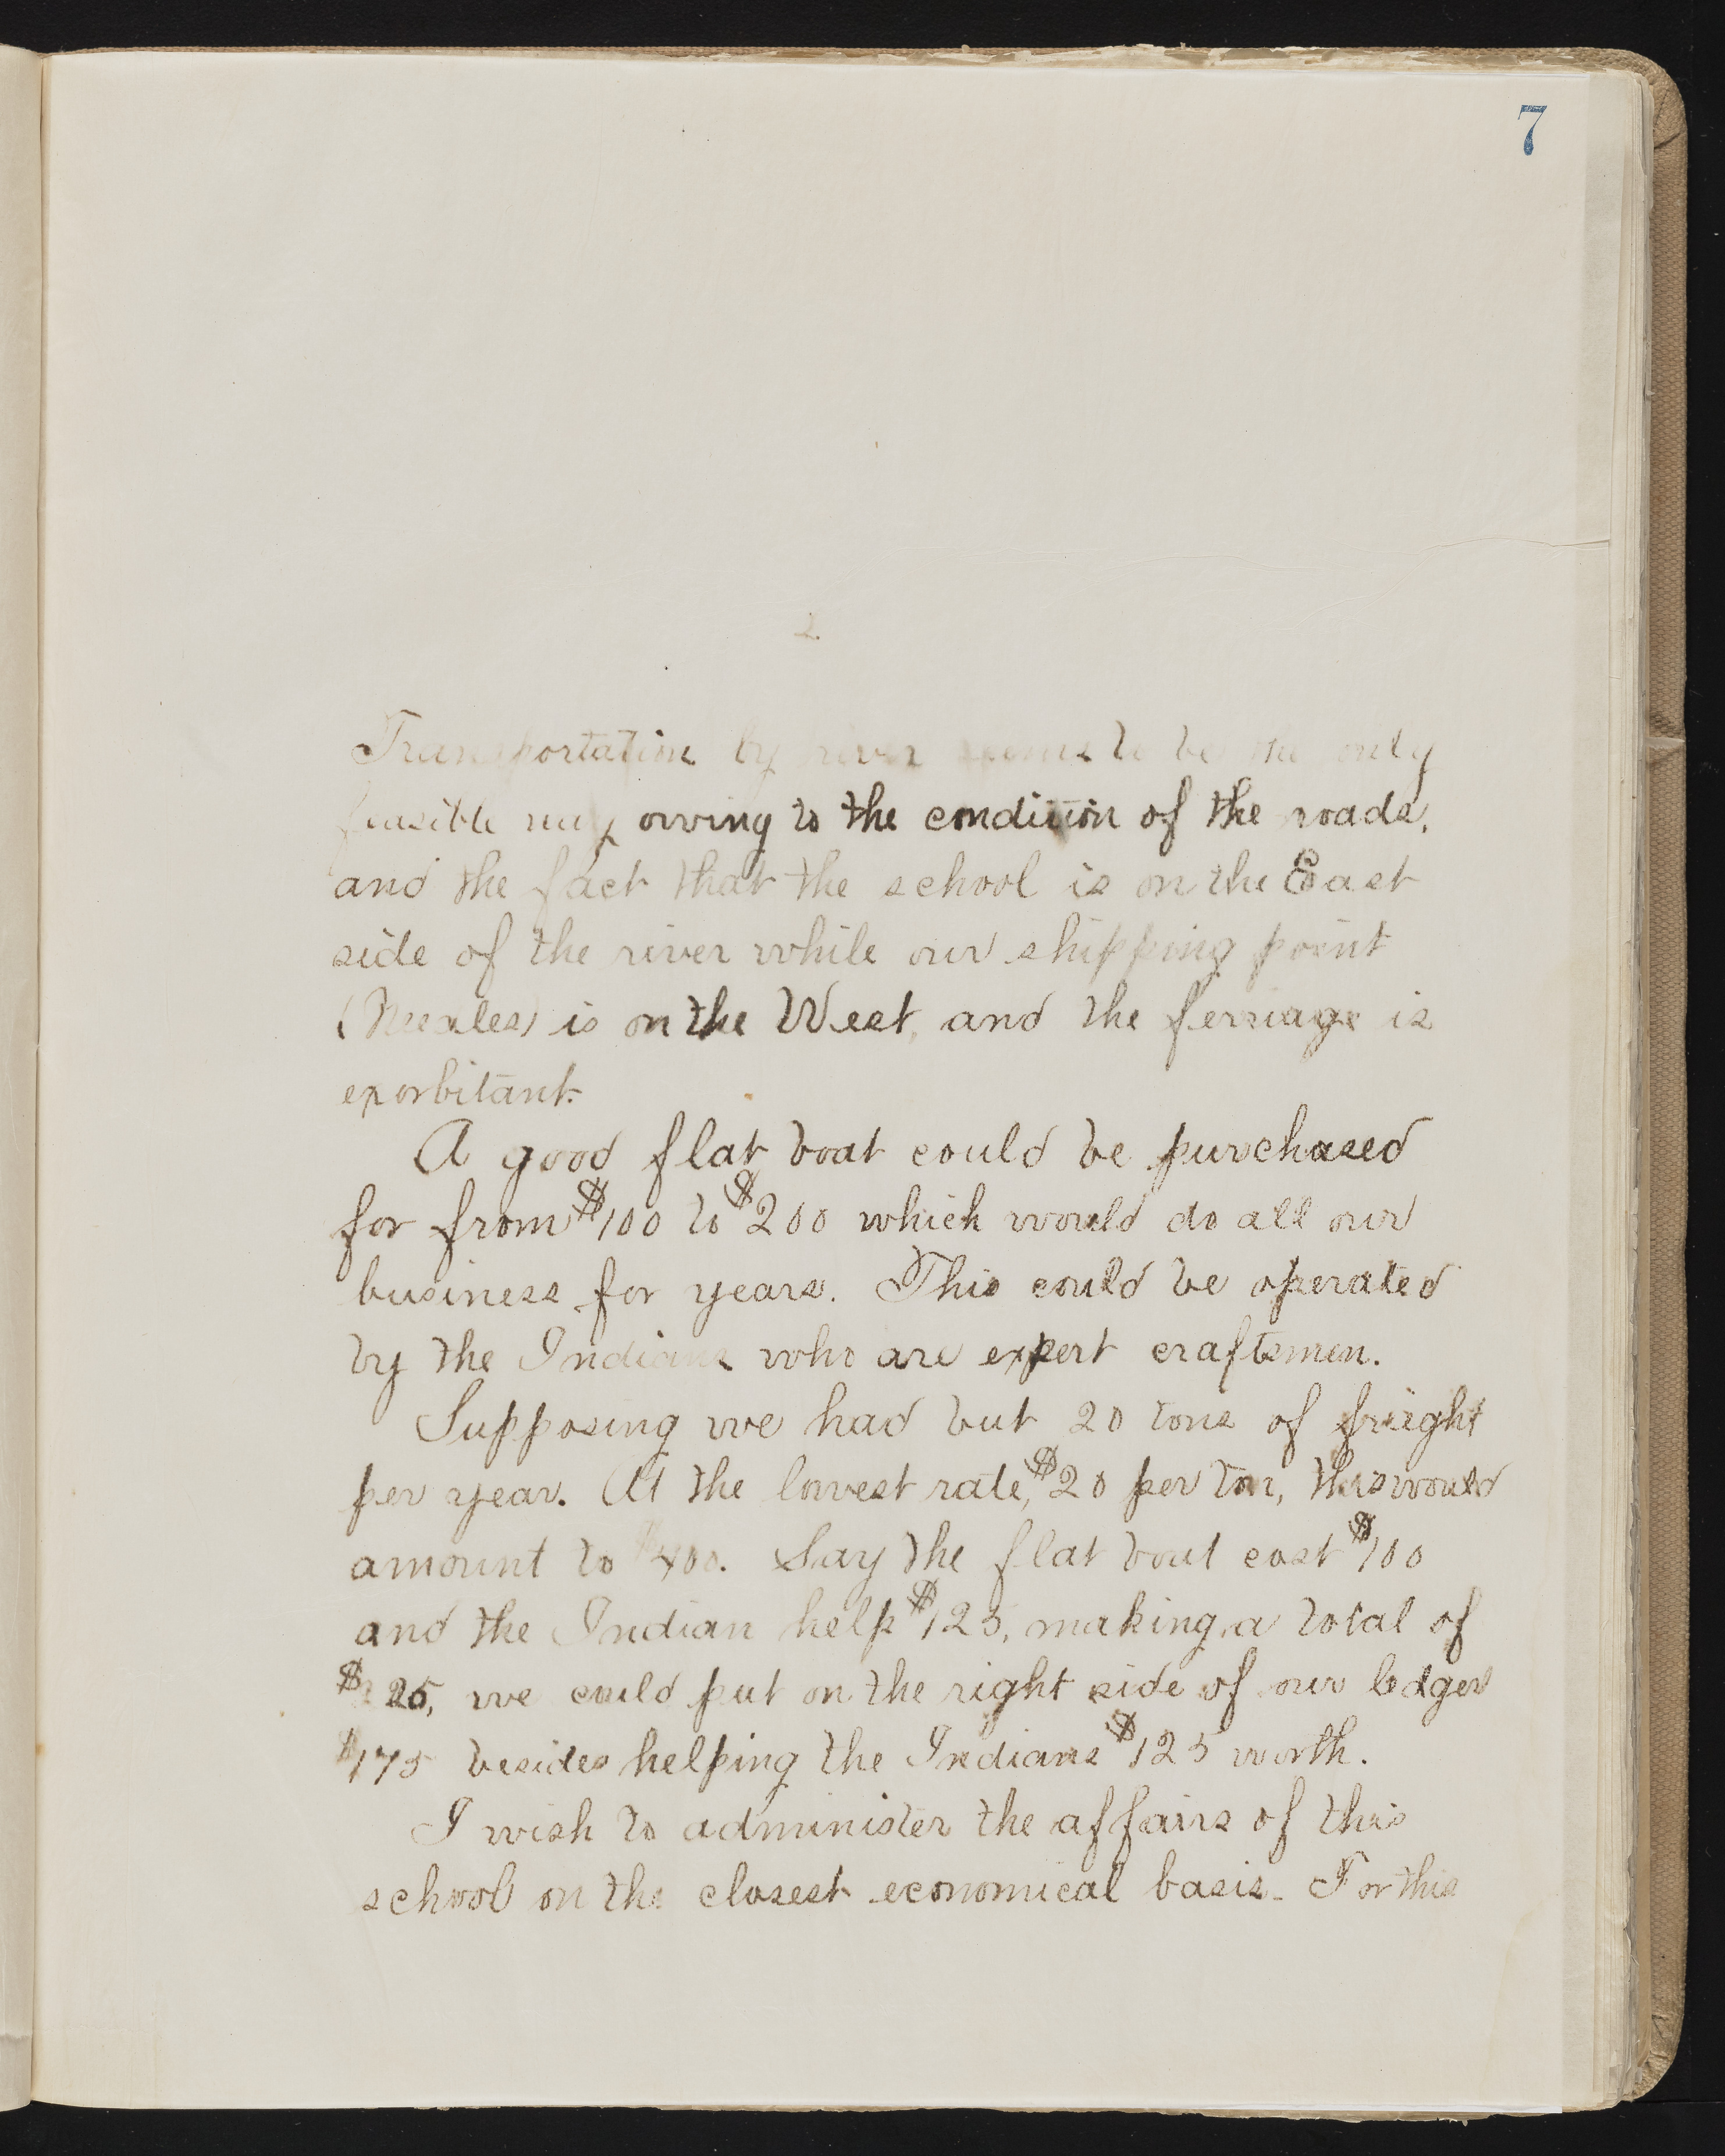 7
2
Transportation by river seems to be the only
feasible way owing to the condition of the roads,
and the fact that the school is on the East
side of the river while our shipping point
(Needles) is on the West, and the ferriage is
exorbitant.
A good flat boat could be purchased
for from $100 to $200 which would do all our
business for years. This could be operated
by the Indians who are expert craftsmen.
Supposing we had but 20 tons of frieght
per year. At the lowest rate, $20 per ton, this would
amount to $400. Say the flat boat cost $100
and the Indian help $125, making a total of
$225, we could put on the right side of our ledger
$175 besides helping the Indians $125 worth.
I wish to administer the affairs of this
school on the closest economical basis. For this